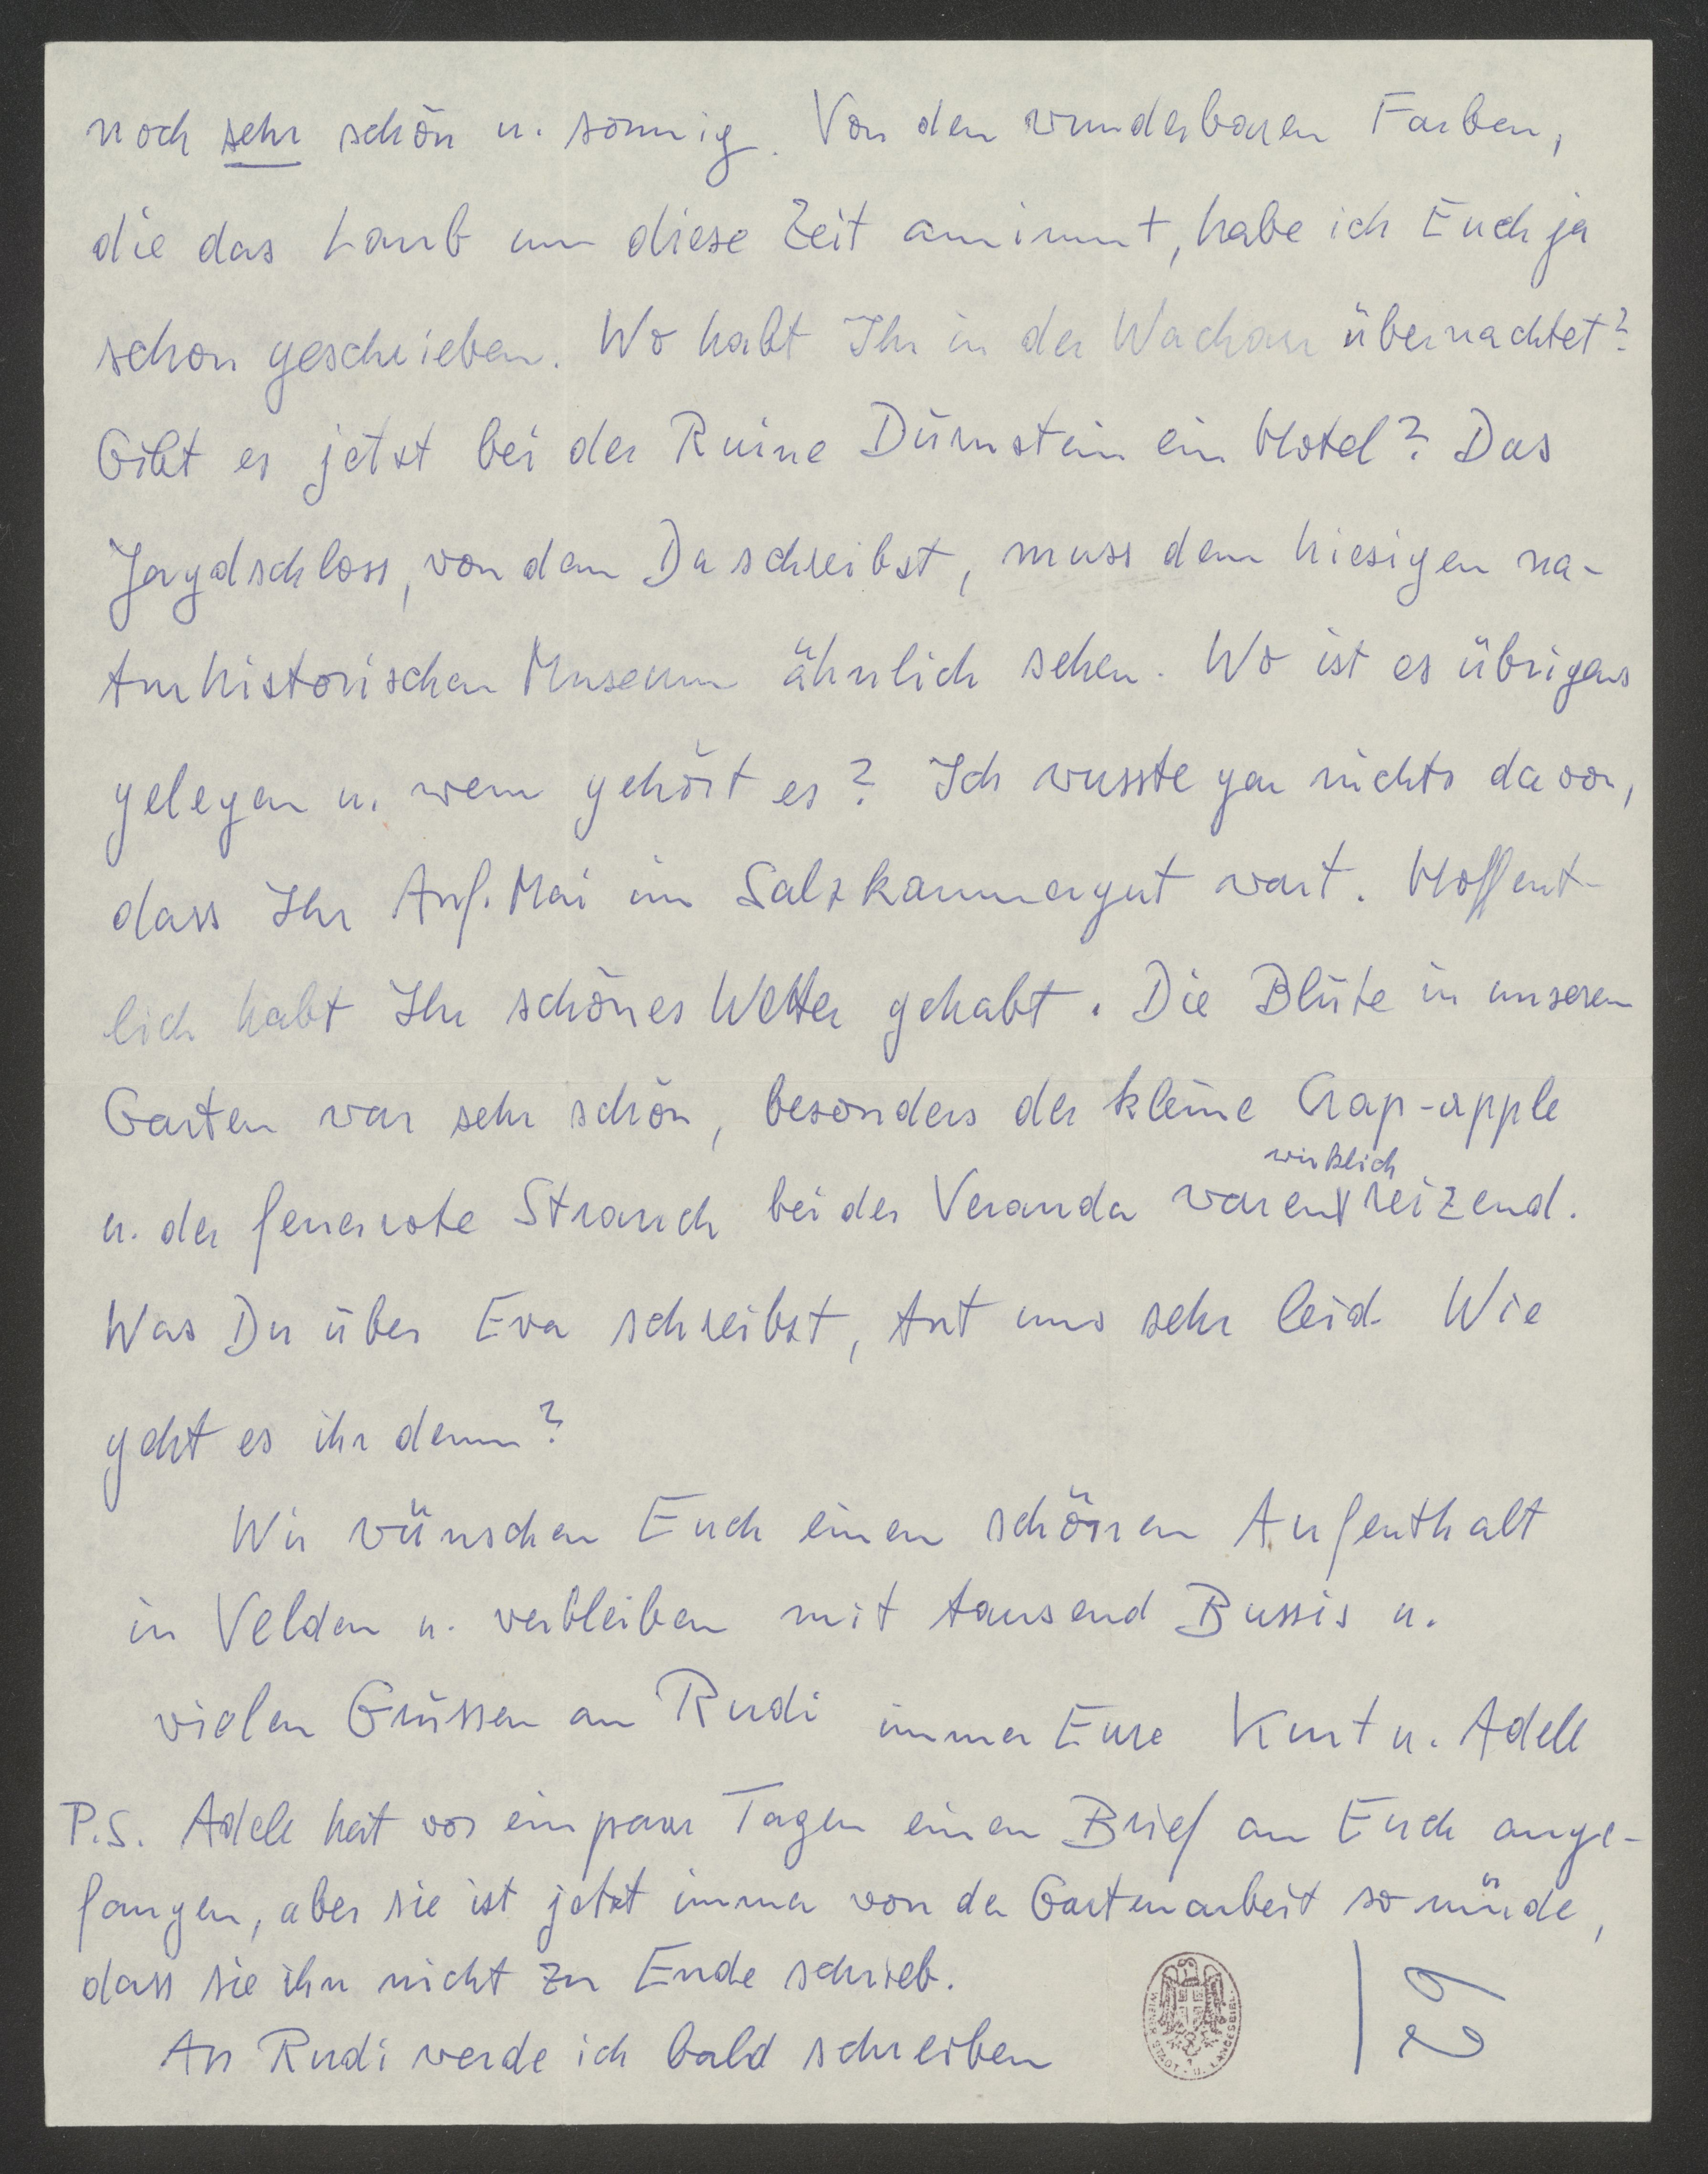 noch sehr schön u. sonnig. Von den wunderbaren Farben,
die das Laub um diese Zeit annimmt, habe ich Euch ja
schon geschrieben. Wo habt Ihr in der Wachau übernachtet?
Gibt es jetzt bei der Ruine Dürnstein ein Hotel? Das
Jagdschloss, von dem Du schreibst, muss dem hiesigen na-
turhistorischen Museum ähnlich sehen. Wo ist es übrigens
gelegen u. wem gehört es? Ich wusste gar nichts davon,
dass Ihr Anf. Mai im Salzkammergut wart. Hoffent-
lich habt Ihr schönes Wetter gehabt. Die Blüte in unserem
Garten war sehr schön, besonders der kleine Crap-apple
wirklich
u. der feuerrote Strauch bei der Veranda waren reizend.
Was Du über Eva schreibst, tut uns sehr leid. Wie
geht es ihr denn?
Wir wünschen Euch einen schönen Aufenthalt
in Velden u. verbleiben mit tausend Bussis u.
vielen Grüssen an Rudi immer Eure Kurt u. Adele
P.S. Adele hat vor ein paar Tagen einen Brief an Euch ange-
fangen, aber sie ist jetzt immer von der Gartenarbeit so müde,
dass sie ihn nicht zu Ende schrieb.
An Rudi werde ich bald schreiben
29